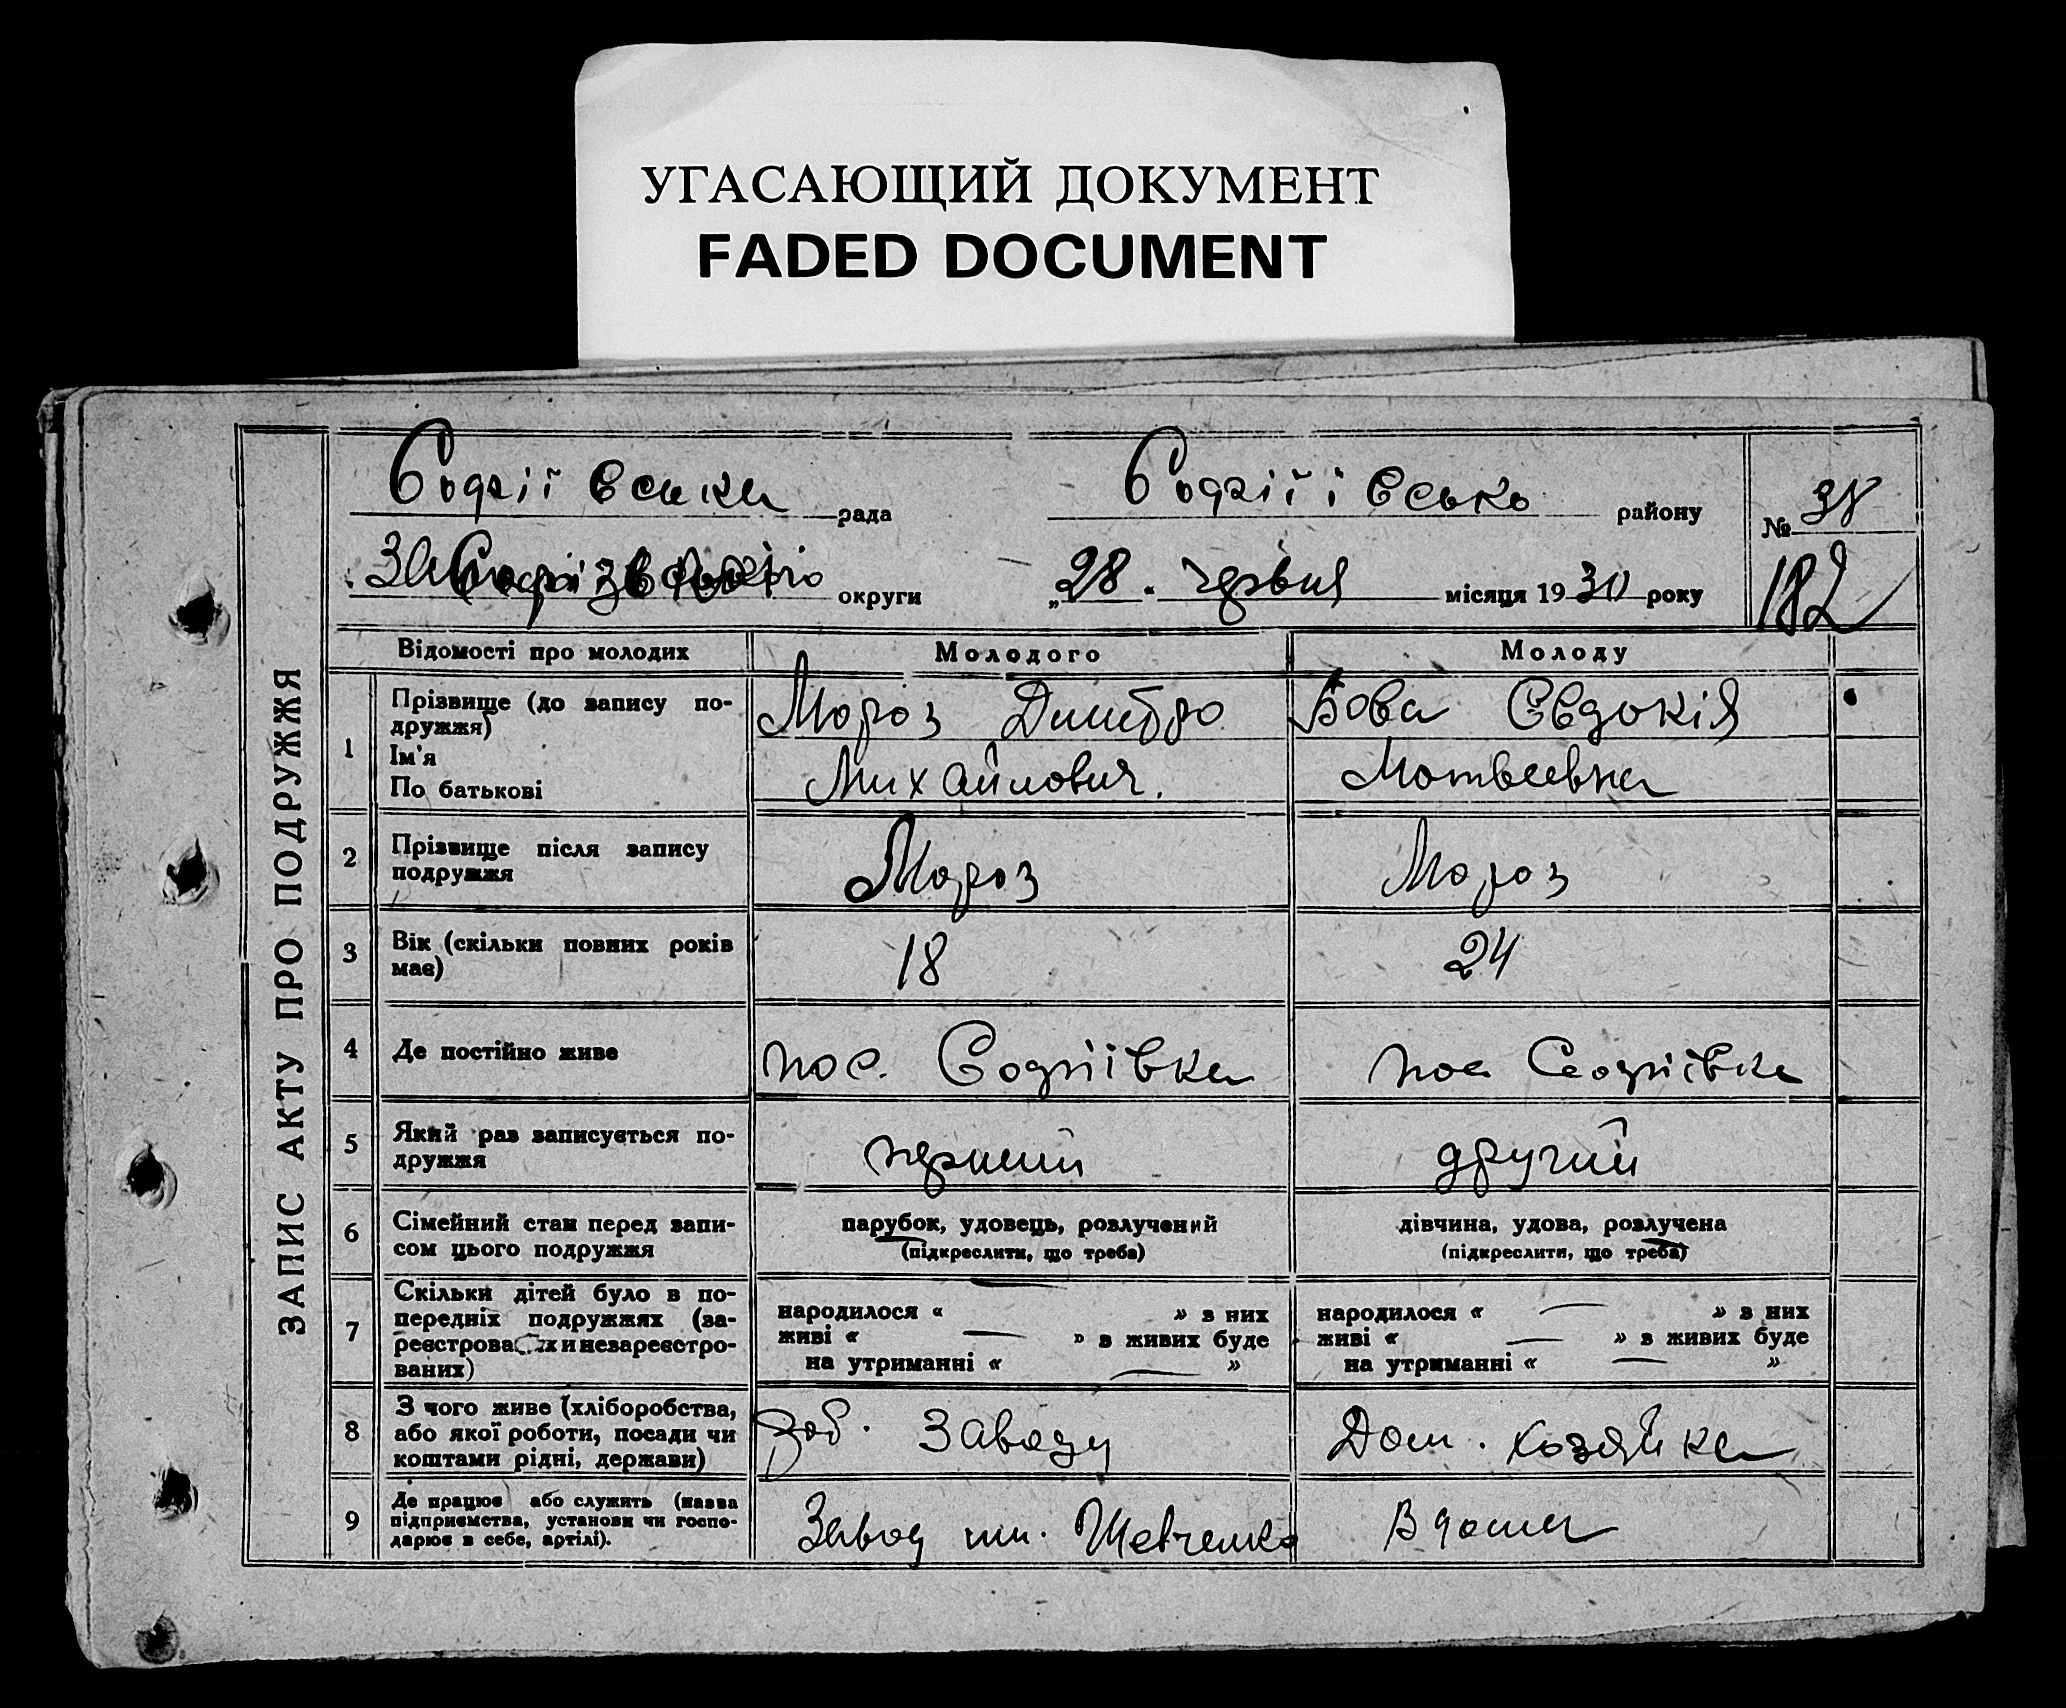 УГАСАЮЩИЙ ДОКУМЕНТ
FADED DOCUMENT
ЗАПИС АКТУ ПРО ПОДРУЖЖЯ
Софіївська рада Софіївсько району № 38
округи „28" червня місяця 1930 року 182
Відомості про молодих Молодого Молоду
1 Прізвище (до запису по-
дружжя)
Ім'я
По батькові
Мороз Дмитро Бова Євдокія
Михайлович. Мотвеевна
2 Прізвище після запису
подружжя
Мороз Мороз
3 Вік (скільки повних років
має)
18 24
4 Де постійно живе пос. Софіївка пос Софіївка
5 Який раз записується по-
дружжя
перший другий
6 Сімейний стан перед запи-
сом цього подружжя
парубок, удовець, розлучений
(підкреслити, що треба)
дівчина, удова, розлучена
(підкреслити, що треба)
7 Скільки дітей було в по-
передніх подружжях (за-
реєстрова х и незареєстро-
ваних)
народилося « — » в них
живі « — » в живих буде
на утриманні « — »
народилося « — » в них
живі « — » в живих буде
на утриманні « — »
8 З чого живе (хліборобства,
або якої роботи, посади чи
коштами рідні, держави)
роб. заводу Дом. хозяйка
9 Де працює або служить (назва
підприємства, установи чи госпо-
дарює в себе, артілі).
Завод им. Шевченко В дома